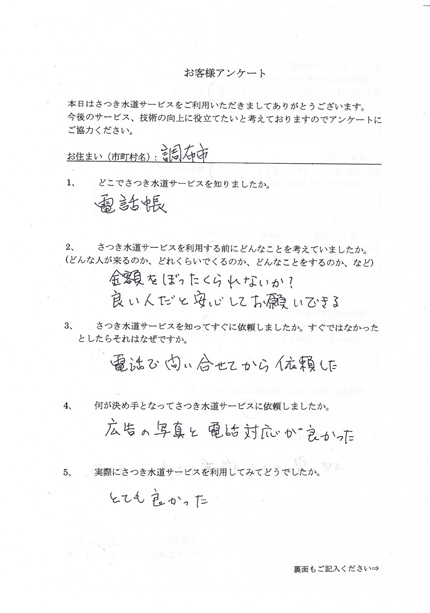 お客様アンケート
本日はさつき水道サービスをご利用いただきましてありがとうございます。
今後のサービス、技術の向上に役立てたいと考えておりますのでアンケートに
ご協力ください。
お住まい（市町村名）：調布市
1、 どこでさつき水道サービスを知りましたか。
電話帳
2、 さつき水道サービスを利用する前にどんなことを考えていましたか。
(どんな人が来るのか、どれくらいでくるのか、どんなことをするのか、など)
金額をぼったくられないか？
良い人だと安心してお願いできる
3、 さつき水道サービスを知ってすぐに依頼しましたか。すぐではなかった
としたらそれはなぜですか。
電話で問い合せてから依頼した
4、 何が決め手となってさつき水道サービスに依頼しましたか。
広告の写真と電話対応が良かった
5、 実際にさつき水道サービスを利用してみてどうでしたか。
とても良かった
裏面もご記入ください⇒